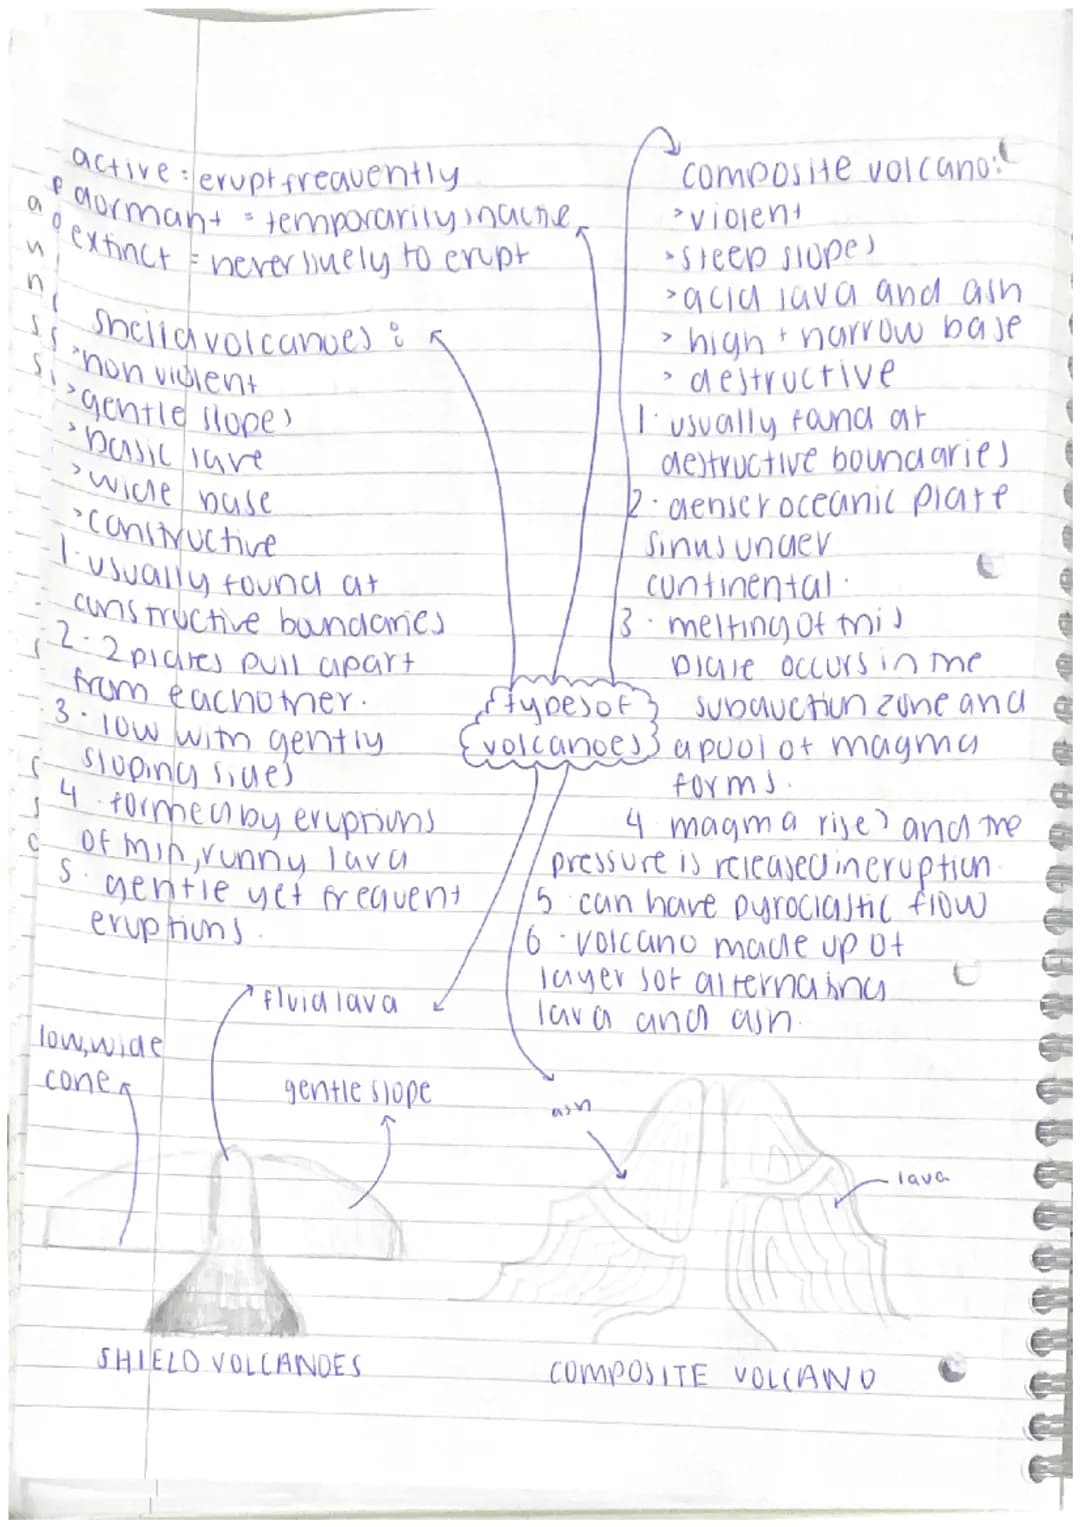 active = erupt frequently
dormant = temporarily inactive
extinct = never likely to erupt
sheild volcanoes:
>non violent
>gentle slopes
>basic lave
>wide base
>constructive
1. usually found at
constructive boundaries
2. 2 plates pull apart
from each other.
3. low with gently
sloping sides
4. formed by eruptions
of thin, runny lava
5. gentle yet frequent
eruptions.
types of
volcanoes
composite volcano:
>violent
>steep slopes
>acid lava and ash
>high + narrow base
>destructive
1. usually found at
destructive boundaries
2. denser oceanic plate
sinks under
continental.
3. melting of this
plate occurs in the
subduction zone and
a pool of magma
forms.
4 magma rises and the
pressure is released in eruption.
5 can have pyroclastic flow
6. volcano made up of
layers of alternating
lava and ash.
fluid lava
low, wide
cone
gentle slope
SHIELD VOLCANOES
ash
lava
COMPOSITE VOLCANO